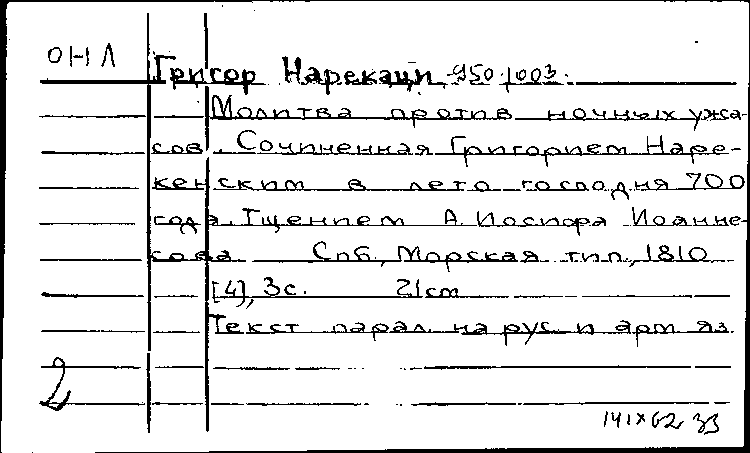 ОНЛ
Григор Нарекаци 950-1003.
Молитва против ночных ужа-
сов. Сочиненная Григорием Наре-
кенским в лето господня 700
года. Тщением А. Иосифа Иоанне-
сова Спб., Морская тип., 1810
[4], 3с. 21cm
Текст парал. на рус. и арм. яз.
2